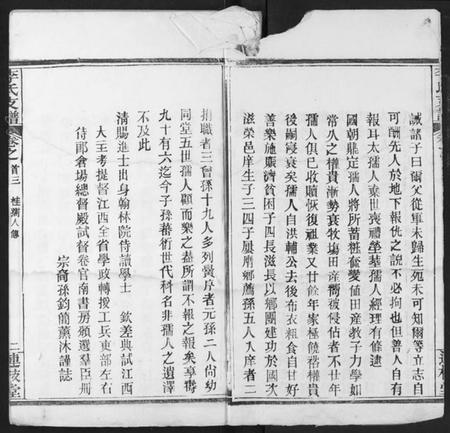 誡諸子曰爾父從軍未歸生死未可知爾等立志自
可酬先人於地下報仇之說不必拘也但善人自有
報耳太孺人棄世喪禮塋墓孺人經理有條逮
國朝鼎定孺人將所蓄粧奩變值田產教子力學如
常八之權貴漸勢衰牧塲田產嚮被侵佔者不廿年
孺人俱已收贖恢復祖業又廿餘年家極饒裕權貴
後嗣寢衰矣孺人自洪輔公去後布衣粗食自甘好
善樂施賑濟貧困子四長滋長以鄉團建功於國次
滋榮邑庠生子三四子顯廟鄉薦孫五人入庠者二
捐職者三曾孫十九人多列黌序者元孫二人尚幼
同堂五世孺人顧而樂之益所謂不報之報矣享壽
九十有六迄今子孫蕃衍世代科名非孺人之遺澤
不及此
清賜進士出身翰林院侍讀學士 欽差典試江西
大主考提督江西全省學政轉授工兵吏部左右
侍郎倉塲總督殿試督卷官南書房領選羣臣冊
宗裔孫鈞簡薰沐謹誌
李氏支譜 卷之首三 桂孺人傳
三連枝堂